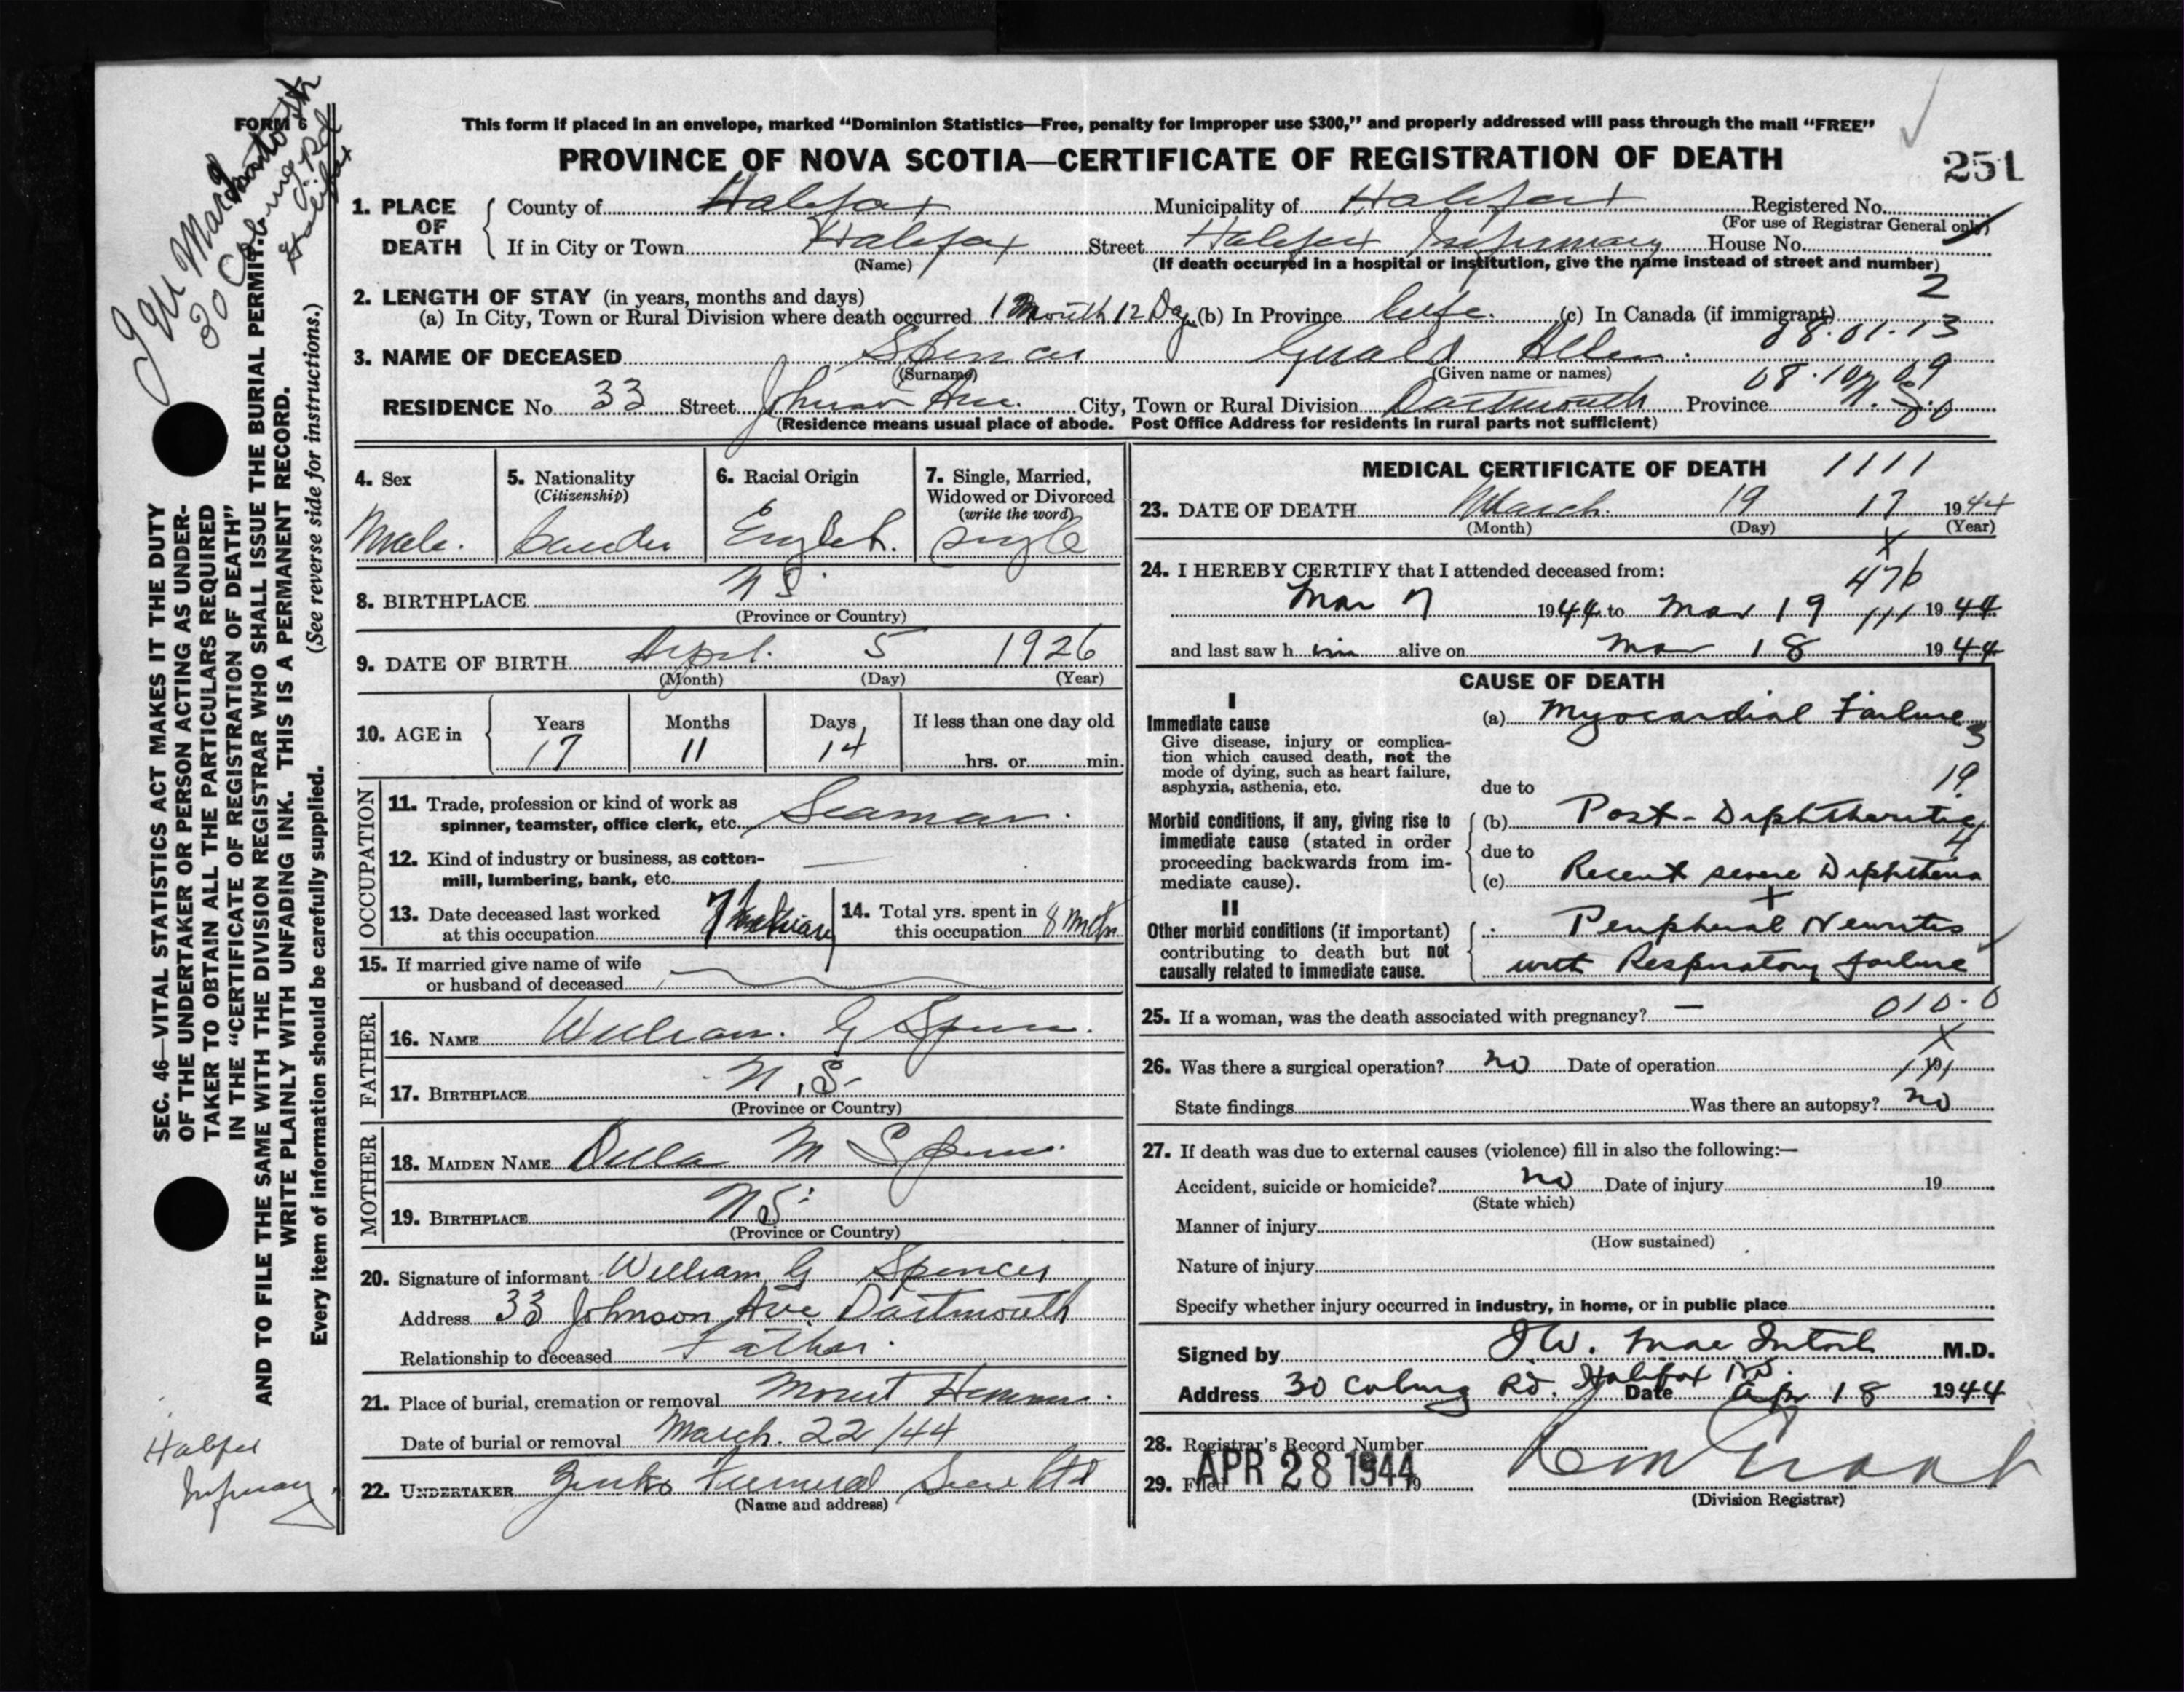 FORM 6
This form if placed in an envelope, marked “Dominion Statistics—Free, penalty for improper use $300,” and properly addressed will pass through the mail “FREE”
PROVINCE OF NOVA SCOTIA—CERTIFICATE OF REGISTRATION OF DEATH
251
1. PLACE OF DEATH
County of Halifax Municipality of Halifax Registered No.
(For use of Registrar General only)
If in City or Town Halifax Street Halifax Infirmary House No.
(Name) (If death occurred in a hospital or institution, give the name instead of street and number)
2
2. LENGTH OF STAY (in years, months and days)
(a) In City, Town or Rural Division where death occurred 1 Month 12 Days (b) In Province Life. (c) In Canada (if immigrant)
08.01.13
3. NAME OF DECEASED Spencer Gerald Allen.
(Surname) (Given name or names)
RESIDENCE No. 33 Street Johnson Ave. City, Town or Rural Division Dartmouth Province N.S.
(Residence means usual place of abode. Post Office Address for residents in rural parts not sufficient)
4. Sex
Male.
5. Nationality
(Citizenship)
6. Racial Origin
English.
7. Single, Married, Widowed or Divorced
(write the word)
Single
8. BIRTHPLACE N S
(Province or Country)
9. DATE OF BIRTH April. 5 1926
(Month) (Day) (Year)
10. AGE in
Years Months Days If less than one day old
17 11 14 hrs. or min.
OCCUPATION
11. Trade, profession or kind of work as spinner, teamster, office clerk, etc. Seaman.
12. Kind of industry or business, as cotton-mill, lumbering, bank, etc.
13. Date deceased last worked at this occupation
14. Total yrs. spent in this occupation 8 Mths
15. If married give name of wife or husband of deceased
FATHER
16. NAME William. G Spencer.
17. BIRTHPLACE N.S.
(Province or Country)
MOTHER
18. MAIDEN NAME M Spencer
19. BIRTHPLACE N S
(Province or Country)
20. Signature of informant William G Spencer
Address 33 Johnson Ave Dartmouth
Relationship to deceased Father.
21. Place of burial, cremation or removal Mount Hermon.
Date of burial or removal March. 22/44
22. UNDERTAKER Zinks Funeral Ltd
(Name and address)
MEDICAL CERTIFICATE OF DEATH 1111
23. DATE OF DEATH March. 19 17 1944
(Month) (Day) (Year)
24. I HEREBY CERTIFY that I attended deceased from:
476
Mar 7 1944 to Mar 19 1944
and last saw him alive on Mar 18 1944
CAUSE OF DEATH
I
Immediate cause
Give disease, injury or complication which caused death, not the mode of dying, such as heart failure, asphyxia, asthenia, etc.
(a) Myocardial Failure
3
19
due to
Morbid conditions, if any, giving rise to immediate cause (stated in order proceeding backwards from immediate cause).
(b) Post-Diphtheritic
4
due to
(c) Recent severe Diphtheria
II
Other morbid conditions (if important) contributing to death but not causally related to immediate cause.
Peripheral Neuritis
with Respiratory failure
25. If a woman, was the death associated with pregnancy? — 010.0
26. Was there a surgical operation? no Date of operation
State findings Was there an autopsy? no
27. If death was due to external causes (violence) fill in also the following:—
Accident, suicide or homicide? no Date of injury 19
(State which)
Manner of injury
(How sustained)
Nature of injury
Specify whether injury occurred in industry, in home, or in public place
Signed by I W. MacIntosh M.D.
Address 30 Coburg Rd. Halifax NS. Date Apr 18 1944
28. Registrar's Record Number
29. Filed APR 28 1944 19
(Division Registrar)
SEC. 46—VITAL STATISTICS ACT MAKES IT THE DUTY
OF THE UNDERTAKER OR PERSON ACTING AS UNDER-
TAKER TO OBTAIN ALL THE PARTICULARS REQUIRED
IN THE “CERTIFICATE OF REGISTRATION OF DEATH”
AND TO FILE THE SAME WITH THE DIVISION REGISTRAR WHO SHALL ISSUE THE BURIAL PERMIT.
WRITE PLAINLY WITH UNFADING INK. THIS IS A PERMANENT RECORD.
Every item of information should be carefully supplied. (See reverse side for instructions.)
30 Coburg Rd
Halifax
Halifax
Infirmary